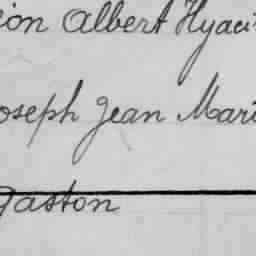 ion Albert Hyaci
oseph Jean Mari
Gaston